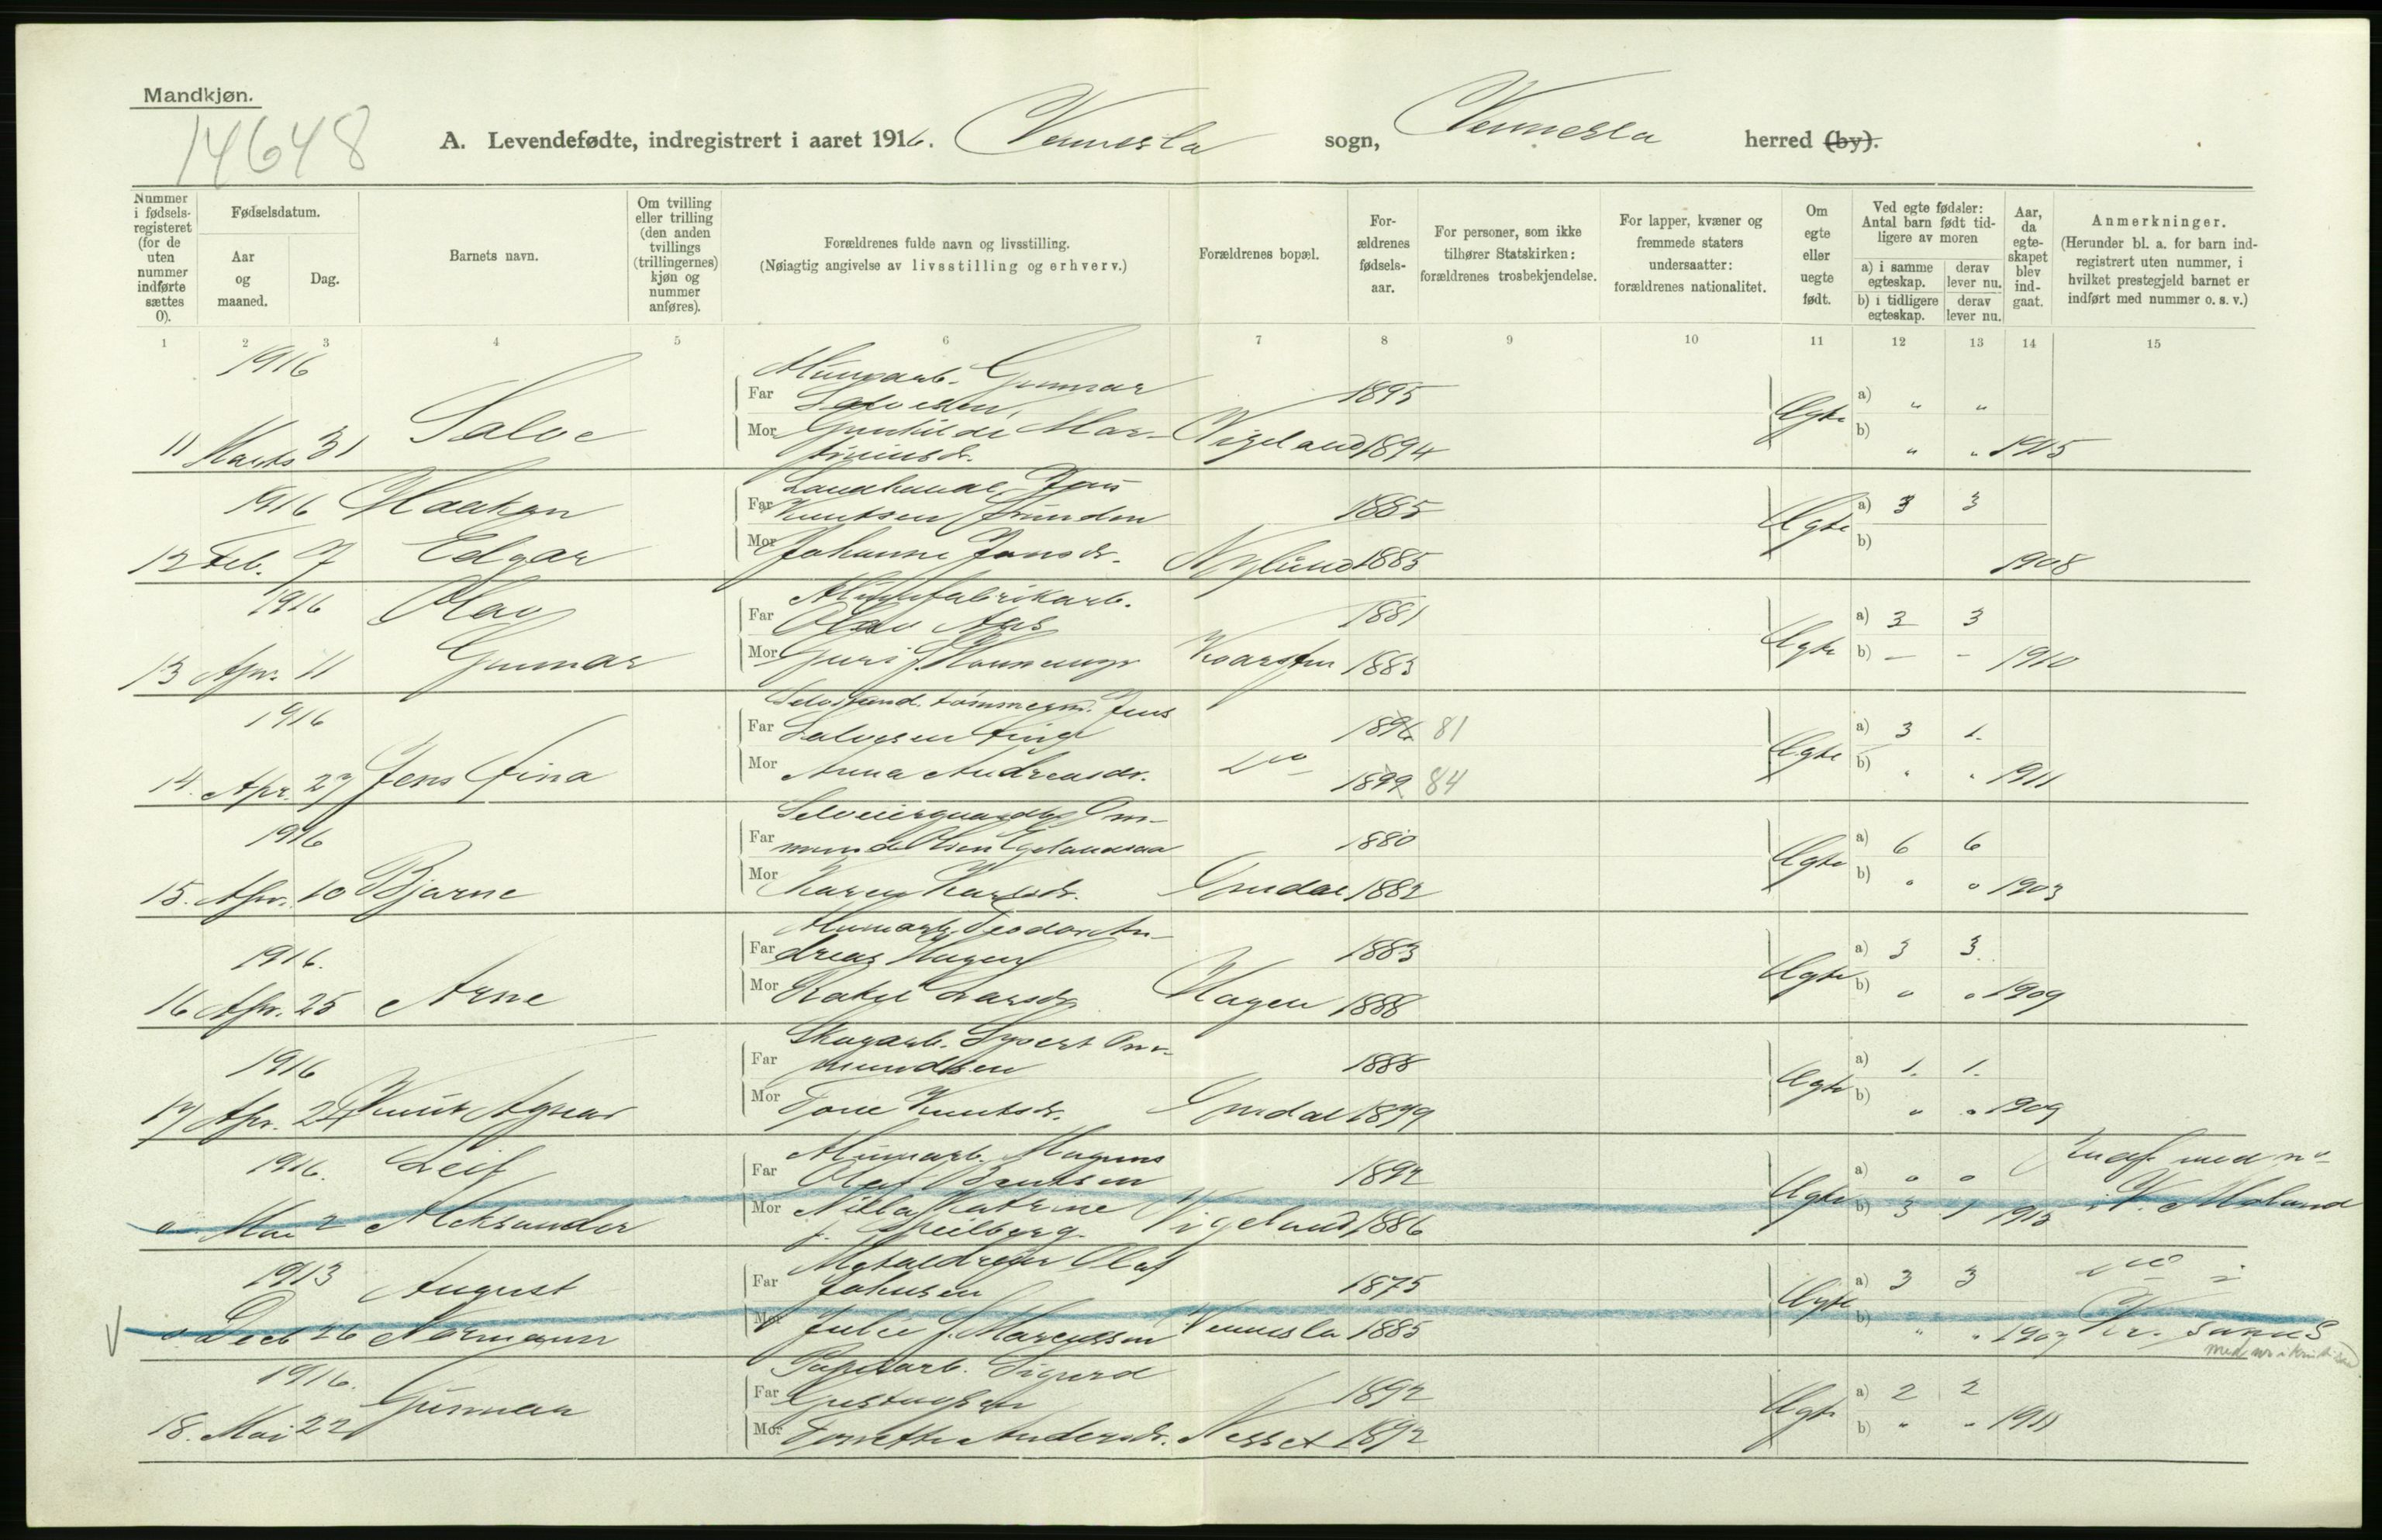 Mandkjøn.
14648
A. Levendefødte, indregistrert i aaret 1916. Vennesla sogn, Vennesla herred (by).
Nummer i fødsels-registeret (for de uten nummer indførte sættes 0).
Fødselsdatum.
Aar og maaned.
Dag.
Barnets navn.
Om tvilling eller trilling (den anden tvillings (trillingernes) kjøn og nummer anføres).
Forældrenes fulde navn og livsstilling.
(Nøiagtig angivelse av livsstilling og erhverv.)
Forældrenes bopæl.
For-ældrenes fødsels-aar.
For personer, som ikke tilhører Statskirken: forældrenes trosbekjendelse.
For lapper, kvæner og fremmede staters undersaatter: forældrenes nationalitet.
Om egte eller uegte født.
Ved egte fødsler: Antal barn født tid-ligere av moren
a) i samme egteskap. derav lever nu.
b) i tidligere egteskap. derav lever nu.
Aar, da egte-skapet blev ind-gaat.
Anmerkninger.
(Herunder bl. a. for barn ind-registrert uten nummer, i hvilket prestegjeld barnet er indført med nummer o. s. v.)
1 2 3 4 5 6 7 8 9 10 11 12 13 14 15
1916
Gunnar
Far Salvesen, 1895 a) " "
11 Marts 31 Salve Mor Gunhilde Mar- Vigeland 1894 Egte b) " " 1915
tiniusdr.
1916 Haakon Jens
Far Knutsen 1885 Egte a) 3 3
12 Feb. 7 Edgar Mor Johanne Jensdr. Nylund 1885 b) 1908
1916 Olav
Far Olav Aas 1881 a) 3 3
13 Apr. 11 Gunnar Mor Guri f. Kvarsten 1883 Egte b) – – 1910
1916 tømmerm. Jens
Far Salvesen 1896 81 a) 3 1.
14. Apr. 27 Jens Mor Anna Andreasdr. 1899 84 Egte b) " " 1911
1916 Om-
Far mund Olsen 1880 a) 6 6
15. Apr. 10 Bjarne Mor Karen Opdal 1882 Egte b) " " 1903
1916. Teodor An-
Far dreas Hagen 1883 a) 3 3.
16 Apr. 25 Arne Mor Rakel Larsdr. Hagen 1888 Egte b) " " 1909
1916 Skogarb. Syvert Om-
Far mundsen 1888 a) 1. 1.
17 Apr. 24 Knut Agnar Mor Tone Knutsdr. Opdal 1899 Egte b) " " 1909
1916. Leif Magnus Indf. med no
Far Olaf 1892 a) " "
0 Mai 2 Aleksander Mor Katrine Vigeland 1886 Egte b) 3 1 1915 i V. Moland
f.
1913 August Olaf
Far Johnsen 1875 a) 3 3 do
V 0 Decb 26 Normann Mor Julie f. Marcussen Vennesla 1885 Egte b) " " 1907 Kr. sands
1916. Papirarb. Sigurd
Far Gustavsen 1892 a) 2 2
18. Mai 22 Gunnar Mor Andersdr. Nesset 1892 Egte b) " " 1911